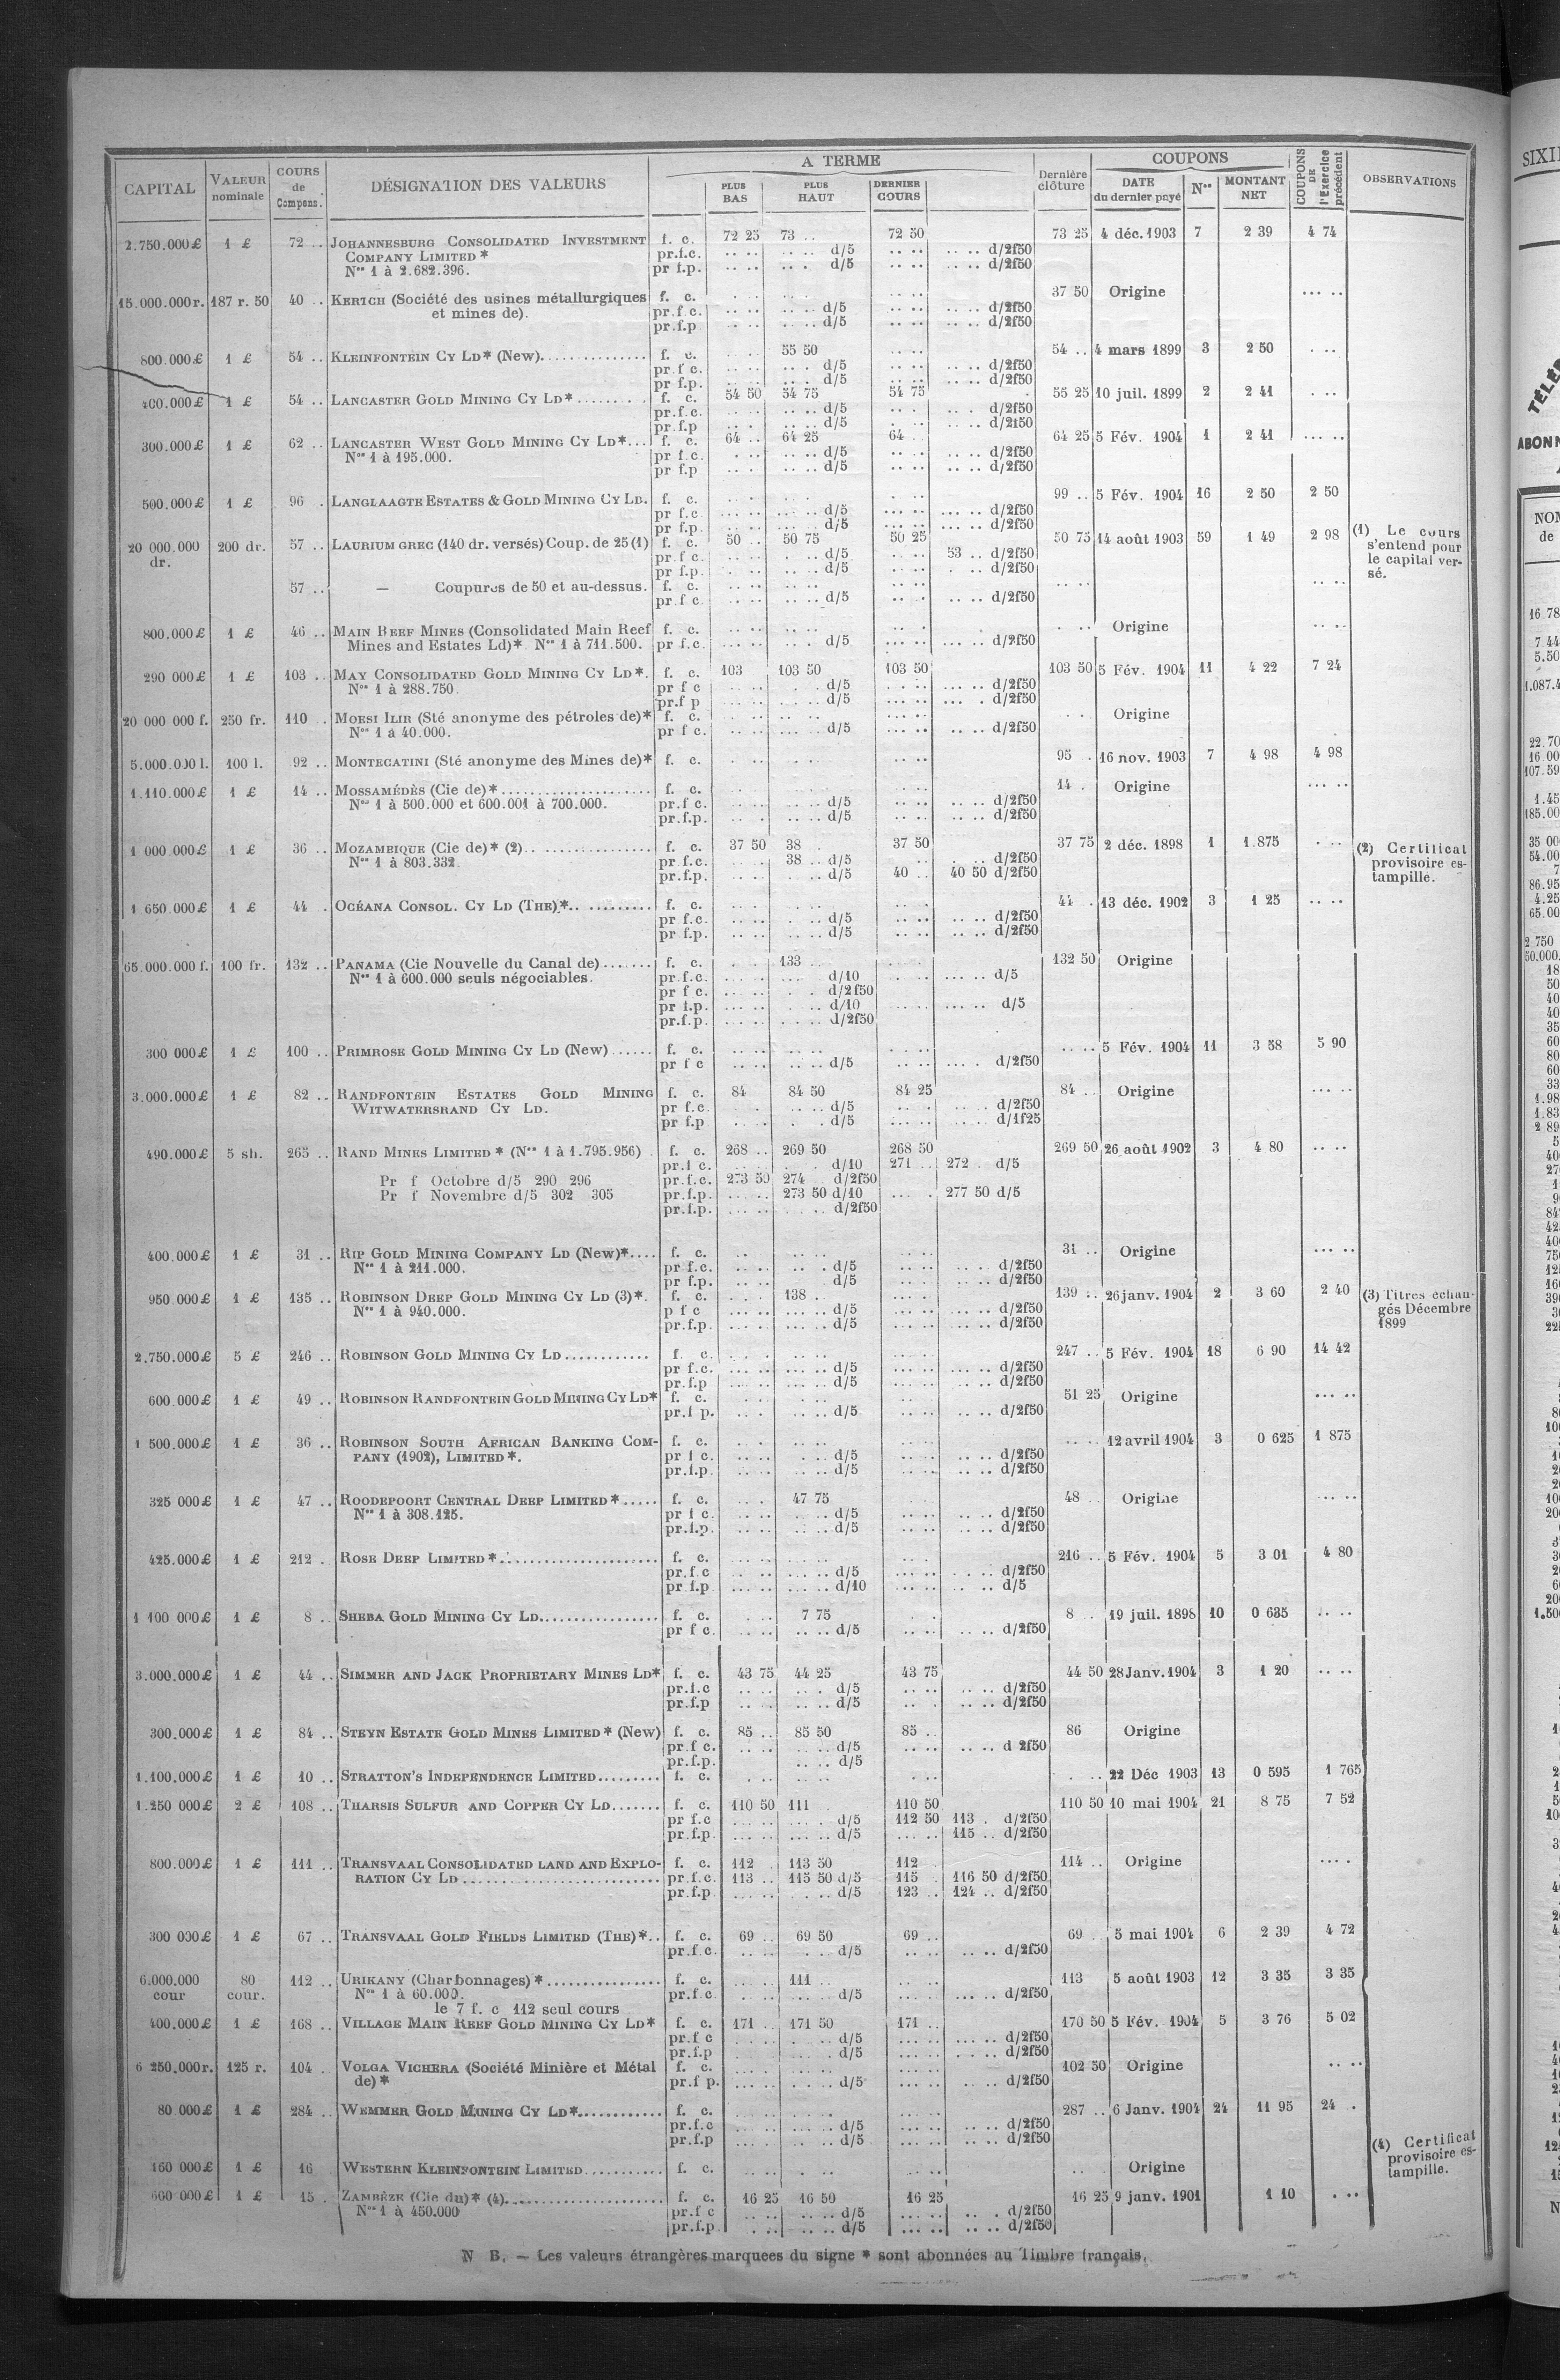 A TERME
COUPONS
CAPITAL VALEUR nominale COURS de Compens. DÉSIGNATION DES VALEURS PLUS BAS PLUS HAUT DERNIER COURS Dernière clôture DATE du dernier payé Nos MONTANT NET COUPONS DE l'Exercice précédent OBSERVATIONS
2.750.000£ 1 £ 72 .. JOHANNESBURG CONSOLIDATED INVESTMENT f. c. 72 25 73 .. 72 50 73 25 4 déc. 1903 7 2 39 4 74
COMPANY LIMITED * pr.f.c. .. .. .. .. d/5 .. .. .. .. d/2f50
Nos 1 à 2.682.396. pr f.p. .. .. .. . d/5 .. .. .. .. d/2f50
15.000.000r. 187 r. 50 40 .. KERTCH (Société des usines métallurgiques f. c. 37 50 Origine ... ..
et mines de). pr.f c. .. .. .. .. d/5 .. .. .. .. d/2f50
pr.f.p .. .. .. .. d/5 .. .. .. .. d/2f50
800.000£ 1 £ 54 .. KLEINFONTEIN CY LD* (New) f. c. 55 50 54 .. 4 mars 1899 3 2 50 . ..
pr f c. d/5 d/2f50
pr f.p. d/5 d/2f50
400.000£ 1 £ 54 .. LANCASTER GOLD MINING CY LD* f. c. 54 50 54 75 54 75 55 25 10 juil. 1899 2 2 41 . ..
pr.f.c. d/5 d/2f50
pr.f.p d/5 d/2f50
300.000£ 1 £ 62 .. LANCASTER WEST GOLD MINING CY LD* f. c. 64 .. 64 25 64 .. 64 25 5 Fév. 1904 1 2 41 ... ..
Nos 1 à 195.000. pr f.c. d/5 d/2f50
pr f.p d/5 d/2f50
500.000£ 1 £ 96 . LANGLAAGTE ESTATES & GOLD MINING CY LD. f. c. 99 .. 5 Fév. 1904 16 2 50 2 50
pr f.c d/5 d/2f50
pr f.p. d/5 d/2f50
20 000.000 dr. 200 dr. 57 .. LAURIUM GREC (140 dr. versés) Coup. de 25 (1) f. c. 50 .. 50 75 50 25 50 75 14 août 1903 59 1 49 2 98 (1) Le cours s'entend pour le capital versé.
pr.f c. d/5 53 .. d/2f50
pr f.p. d/5 d/2f50
57 .. — Coupures de 50 et au-dessus. f. c.
pr.f c d/5 d/2f50
800.000£ 1 £ 46 .. MAIN REEF MINES (Consolidated Main Reef f. c. Origine
Mines and Estates Ld)* Nos 1 à 711.500. pr f.c. d/5 d/2f50
290 000£ 1 £ 103 .. MAY CONSOLIDATED GOLD MINING CY LD*. f. c. 103 103 50 103 50 103 50 5 Fév. 1904 11 4 22 7 24
Nos 1 à 288.750. pr f c d/5 d/2f50
pr.f p d/5 d/2f50
20 000 000 f. 250 fr. 110 .. MOESI ILIR (Sté anonyme des pétroles de)* f. c. Origine
Nos 1 à 40.000. pr f c. d/5 d/2f50
5.000.000 l. 100 l. 92 .. MONTECATINI (Sté anonyme des Mines de)* f. c. 95 . 16 nov. 1903 7 4 98 4 98
1.110.000£ 1 £ 14 .. MOSSAMÉDÈS (Cie de)* f. c. 14 . Origine ... ..
Nos 1 à 500.000 et 600.001 à 700.000. pr.f c. d/5 d/2f50
pr.f.p. d/5 d/2f50
1 000.000£ 1 £ 36 .. MOZAMBIQUE (Cie de)* (2) f. c. 37 50 38 . 37 50 37 75 2 déc. 1898 1 1.875 (2) Certificat provisoire estampillé.
Nos 1 à 803.332. pr f.c. 38 .. d/5 d/2f50
pr.f.p. d/5 40 .. 40 50 d/2f50
1 650.000£ 1 £ 44 . OCÉANA CONSOL. CY LD (THE)* f. c. 44 . 13 déc. 1902 3 1 25 .. ..
pr f.c. d/5 d/2f50
pr f.p. d/5 d/2f50
65.000.000 f. 100 fr. 132 .. PANAMA (Cie Nouvelle du Canal de) f. c. 133 .. 132 50 Origine
Nos 1 à 600.000 seuls négociables. pr.f.c. d/10 d/5
pr f c. d/2f50
pr f.p. d/10 d/5
pr.f.p. d/2f50
300 000£ 1 £ 100 .. PRIMROSE GOLD MINING CY LD (New) f. c. 5 Fév. 1904 11 3 58 5 90
pr f c d/5 d/2f50
3.000.000£ 1 £ 82 .. RANDFONTEIN ESTATES GOLD MINING f. c. 84 84 50 84 25 84 .. Origine ... ..
WITWATERSRAND CY LD. pr f.c. d/5 d/2f50
pr f.p d/5 d/1f25
490.000£ 5 sh. 265 .. RAND MINES LIMITED * (Nos 1 à 1.795.956) f. c. 268 .. 269 50 268 50 269 50 26 août 1902 3 4 80 .. ..
pr.f c. d/10 271 .. 272 . d/5
Pr f Octobre d/5 290 296 pr.f.c. 273 50 274 d/2f50
Pr f Novembre d/5 302 305 pr.f.p. 273 50 d/10 277 50 d/5
pr.f.p. d/2f50
400.000£ 1 £ 31 .. RIP GOLD MINING COMPANY LD (New)* f. c. 31 .. Origine ... ..
Nos 1 à 211.000. pr f.c. d/5 d/2f50
pr f.p. d/5 d/2f50
950.000£ 1 £ 135 .. ROBINSON DEEP GOLD MINING CY LD (3)*. f. c. 138 . 139 .. 26 janv. 1904 2 3 60 2 40 (3) Titres échangés Décembre 1899
Nos 1 à 940.000. p f c d/5 d/2f50
pr.f.p. d/5 d/2f50
2.750.000£ 5 £ 246 .. ROBINSON GOLD MINING CY LD f. c. 247 .. 5 Fév. 1904 18 6 90 14 42
pr f.c. d/5 d/2f50
pr f.p d/5 d/2f50
600.000£ 1 £ 49 .. ROBINSON RANDFONTEIN GOLD MINING CY LD* f. c. 51 25 Origine ... ..
pr.f p. d/5 d/2f50
1 500.000£ 1 £ 36 .. ROBINSON SOUTH AFRICAN BANKING COM- f. c. 12 avril 1904 3 0 625 1 875
PANY (1902), LIMITED *. pr f c. d/5 d/2f50
pr.f.p. d/5 d/2f50
325 000£ 1 £ 47 .. ROODEPOORT CENTRAL DEEP LIMITED * f. c. 47 75 48 .. Origine
Nos 1 à 308.125. pr f c. d/5 d/2f50
pr.f.p. d/5 d/2f50
425.000£ 1 £ 212 . ROSE DEEP LIMITED * f. c. 216 .. 5 Fév. 1904 5 3 01 4 80
pr.f c d/5 d/2f50
pr f.p d/10 d/5
1 100 000£ 1 £ 8 .. SHEBA GOLD MINING CY LD f. c. 7 75 8 . 19 juil. 1898 10 0 635 .. ..
pr f c. d/5 d/2f50
3.000.000£ 1 £ 44 .. SIMMER AND JACK PROPRIETARY MINES LD* f. c. 43 75 44 25 43 75 44 50 28 Janv. 1904 3 1 20 .. ..
pr.f.c d/5 d/2f50
pr.f.p d/5 d/2f50
300.000£ 1 £ 84 .. STEYN ESTATE GOLD MINES LIMITED * (New) f. c. 85 .. 85 50 85 .. 86 Origine
pr.f c. d/5 d 2f50
pr.f.p. d/5
1.100.000£ 1 £ 10 .. STRATTON'S INDEPENDENCE LIMITED f. c. 22 Déc 1903 13 0 595 1 765
1.250 000£ 2 £ 108 .. THARSIS SULFUR AND COPPER CY LD f. c. 110 50 111 . 110 50 110 50 10 mai 1904 21 8 75 7 52
pr f.c d/5 112 50 113 . d/2f50
pr.f.p. d/5 115 .. d/2f50
800.000£ 1 £ 111 .. TRANSVAAL CONSOLIDATED LAND AND EXPLO- f. c. 112 . 113 50 112 114 .. Origine
RATION CY LD pr.f.c. 113 .. 115 50 d/5 115 . 116 50 d/2f50
pr.f.p. d/5 123 .. 124 .. d/2f50
300 000£ 1 £ 67 .. TRANSVAAL GOLD FIELDS LIMITED (THE)* f. c. 69 .. 69 50 69 .. 69 . 5 mai 1904 6 2 39 4 72
pr.f.c. d/5 d/2f50
6.000.000 cour 80 cour. 112 .. URIKANY (Charbonnages) * f. c. 111 .. 113 5 août 1903 12 3 35 3 35
Nos 1 à 60.000. pr.f.c d/5 d/2f50
le 7 f. c 112 seul cours
400.000£ 1 £ 168 .. VILLAGE MAIN REEF GOLD MINING CY LD* f. c. 171 .. 171 50 171 .. 170 50 5 Fév. 1904 5 3 76 5 02
pr.f c d/5 d/2f50
pr.f.p d/5 d/2f50
6 250.000r. 125 r. 104 . VOLGA VICHERA (Société Minière et Métal f. c. 102 50 Origine
de) * pr.f p. d/5 d/2f50
80 000£ 1 £ 284 .. WEMMER GOLD MINING CY LD* f. c. 287 .. 6 Janv. 1904 24 11 95 24 .
pr.f.c d/5 d/2f50
pr.f.p d/5 d/2f50
160 000£ 1 £ 16 WESTERN KLEINFONTEIN LIMITED f. c. Origine (4) Certificat provisoire estampillé.
600 000£ 1 £ 15 . ZAMBÈZE (Cie du)* (4) f. c. 16 25 16 50 16 25 16 25 9 janv. 1901 1 10
Nos 1 à 450.000 pr.f c d/5 d/2f50
pr.f.p. d/5 d/2f50
N B. — Les valeurs étrangères marquees du signe * sont abonnées au Timbre français.